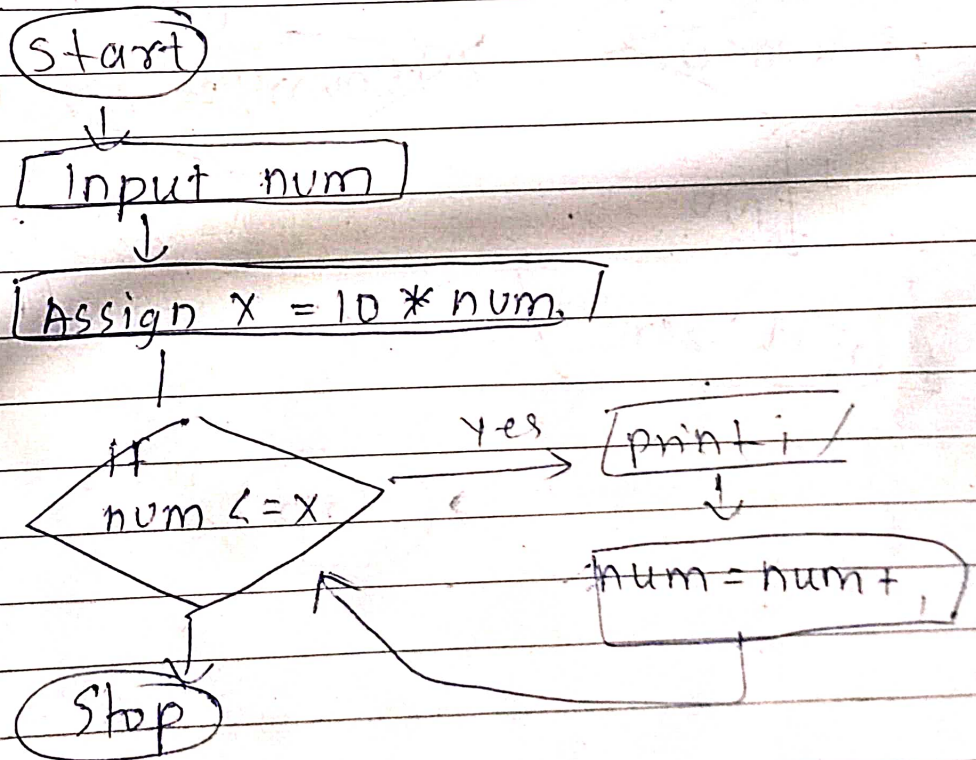 Start
Input num
Assign X = 10 * num.
If
num <= X
Yes
print i
num = num +
Stop